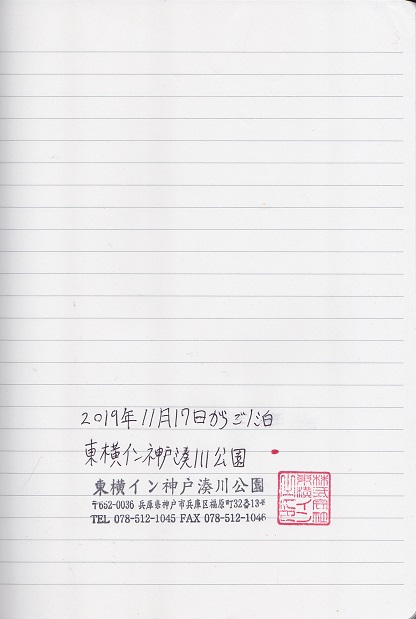 2019年11月17日からご1泊
東横イン神戸湊川公園
東横イン神戸湊川公園
〒652-0036 兵庫県神戸市兵庫区福原町32番13号
TEL 078-512-1045 FAX 078-512-1046
株式会社
東横イン